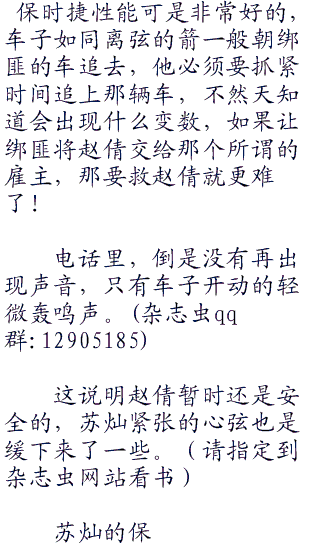 保时捷性能可是非常好的，
车子如同离弦的箭一般朝绑
匪的车追去，他必须要抓紧
时间追上那辆车，不然天知
道会出现什么变数，如果让
绑匪将赵倩交给那个所谓的
雇主，那要救赵倩就更难
了！
电话里，倒是没有再出
现声音，只有车子开动的轻
微轰鸣声。(杂志虫qq
群:12905185)
这说明赵倩暂时还是安
全的，苏灿紧张的心弦也是
缓下来了一些。（请指定到
杂志虫网站看书）
苏灿的保